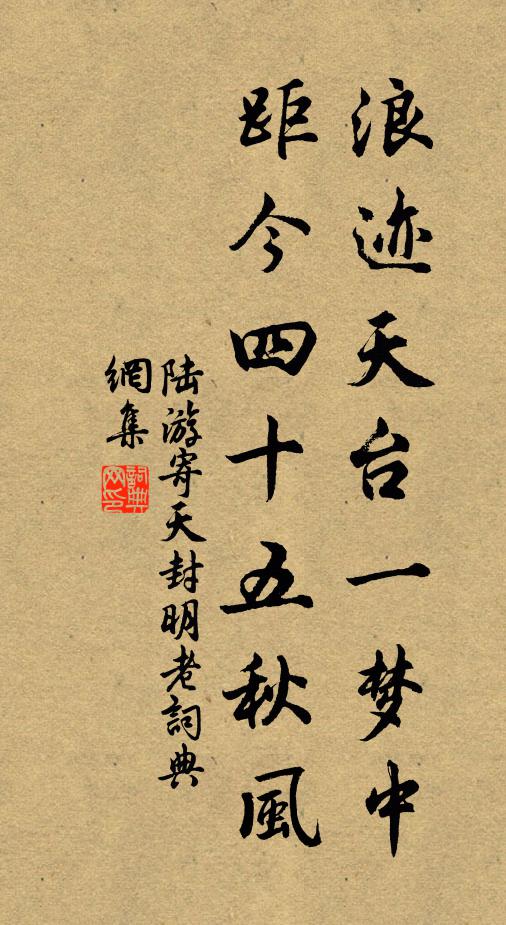 浪迹天台一梦中
距今四十五秋風
陆游寄天封明老詞典
網集
詞典
网印